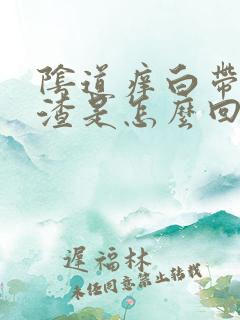 陰道痒白帶
渣是怎麼回
遲福林
未经同意禁止转载